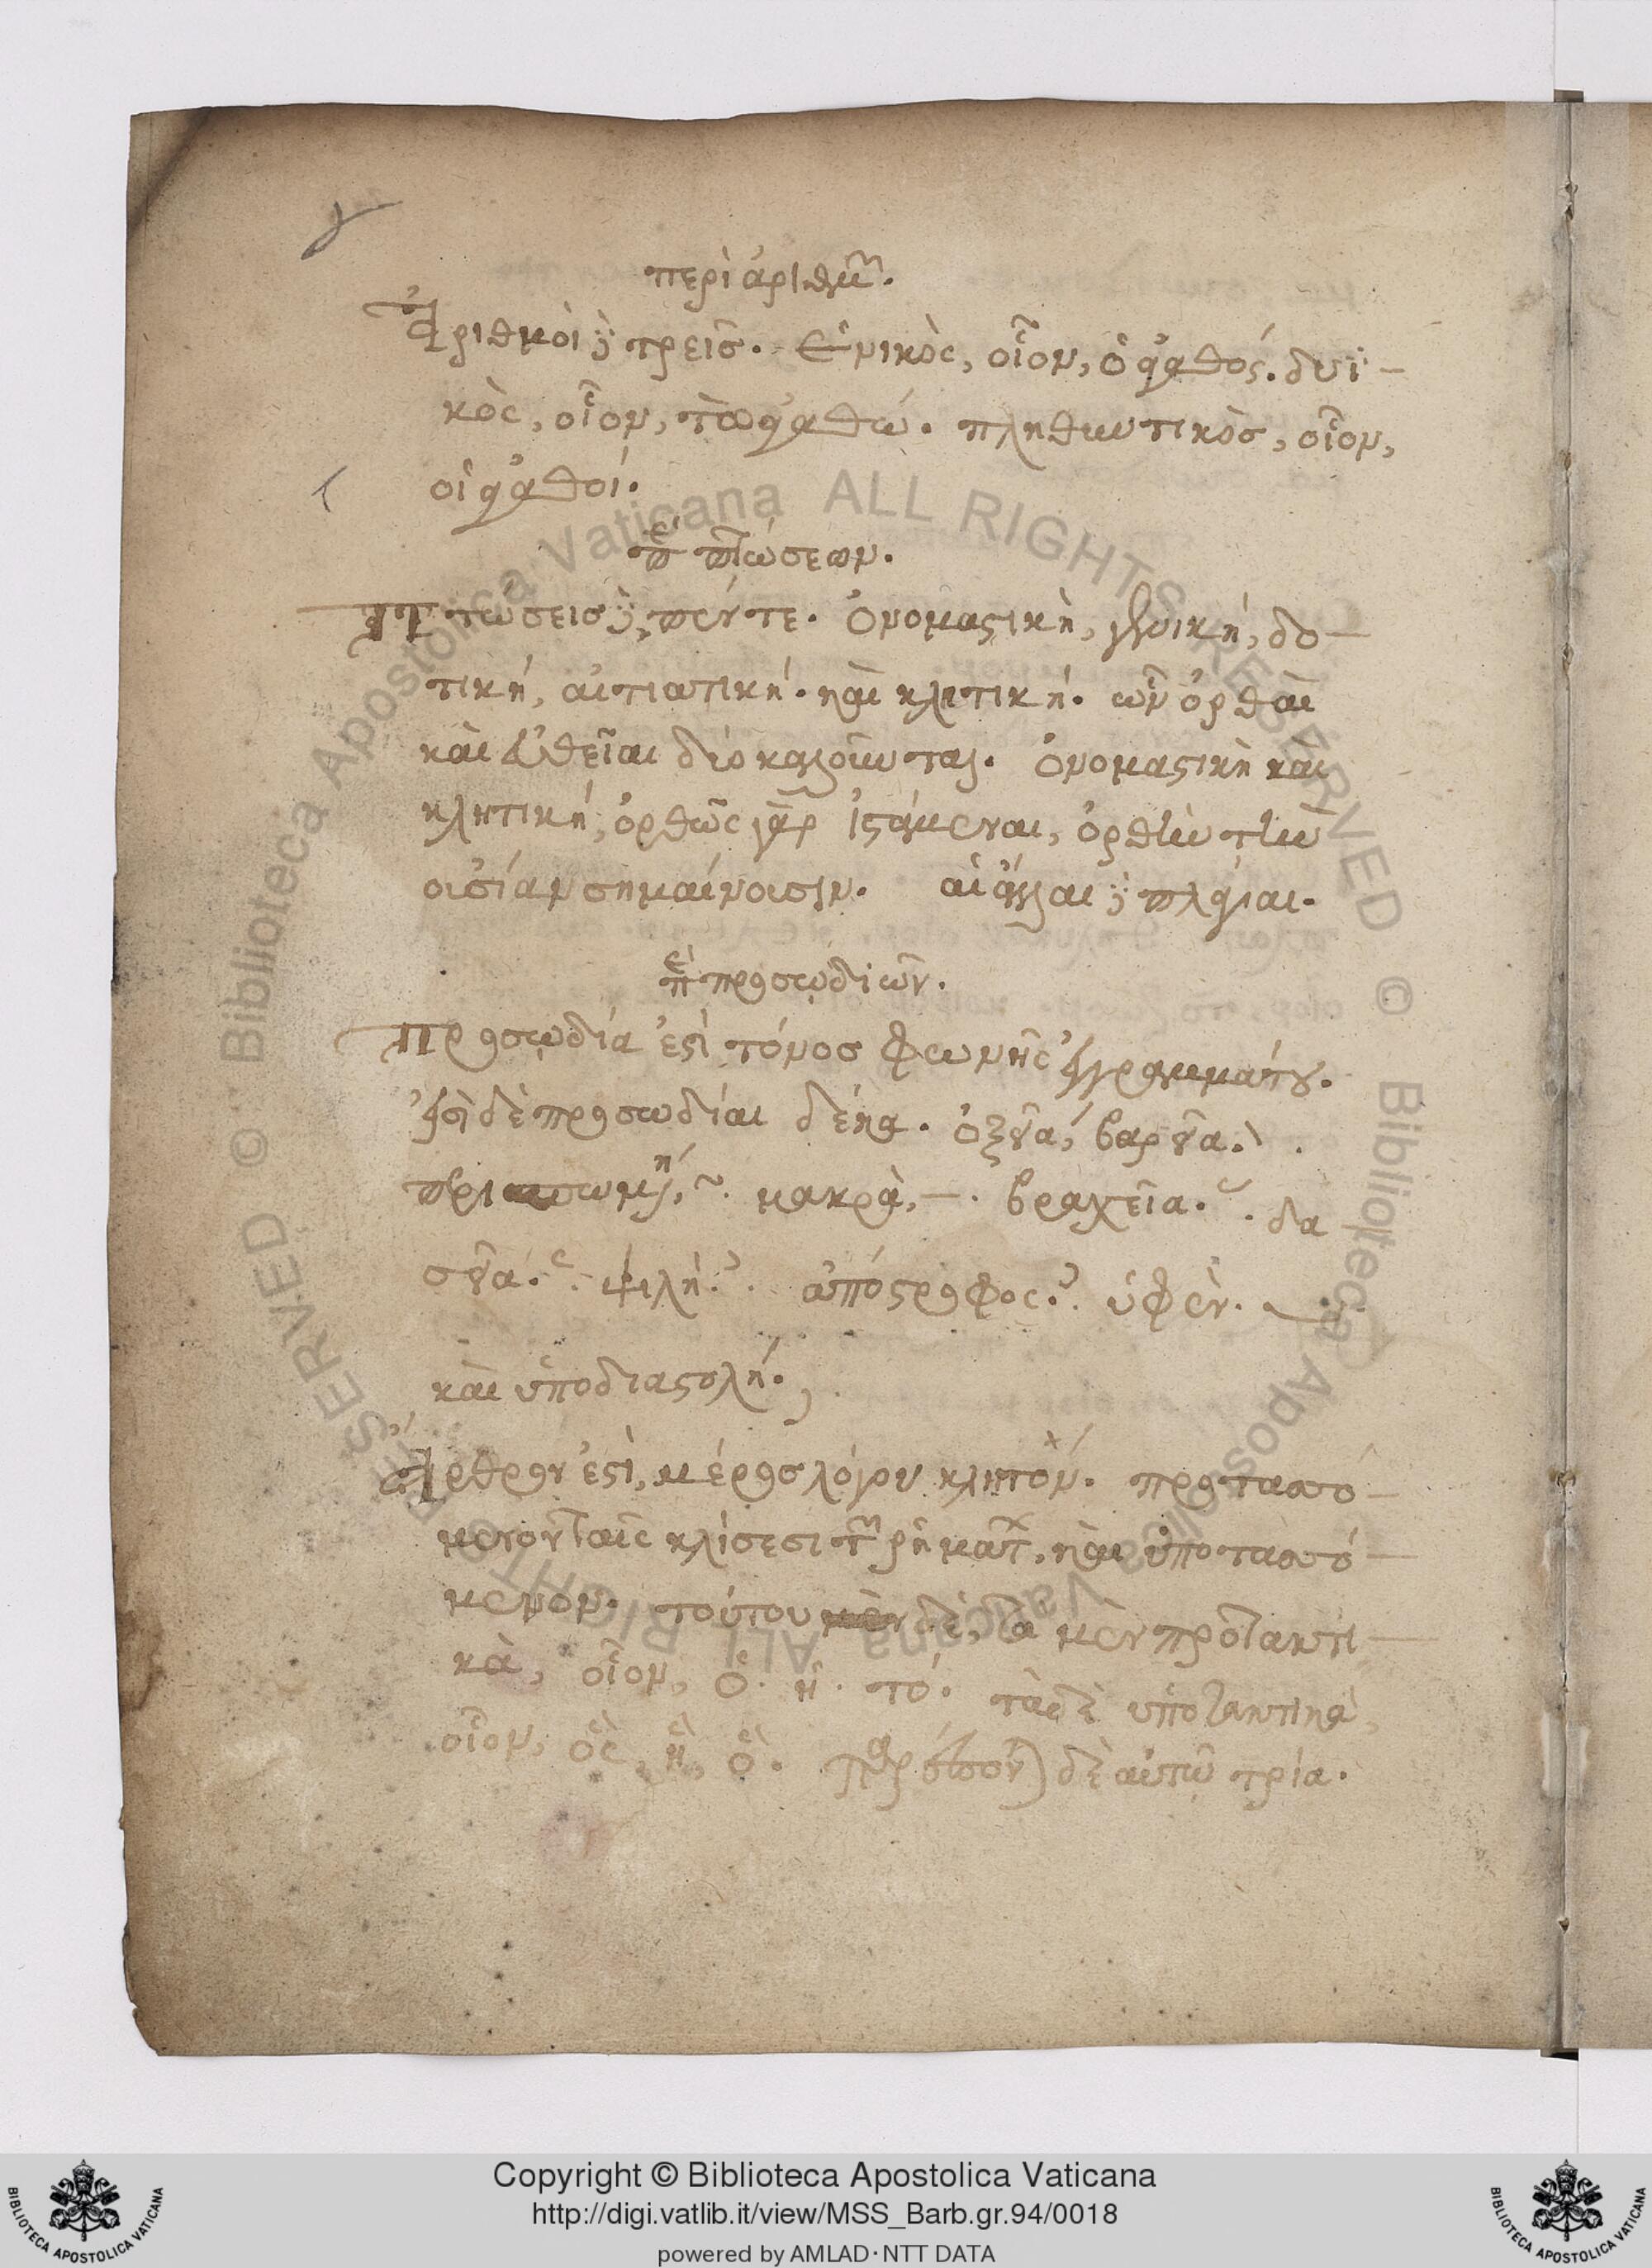 περὶ ἀριθμῶν.
Ἀριθμοὶ δὲ τρεῖς. ἑνικὸς, οἷον, ὁ ἀγαθός. δυϊ-
κὸς, οἷον, τὼ ἀγαθώ. πληθυντικὸς, οἷον,
οἱ ἀγαθοί.
περὶ πτώσεων.
Πτώσεις δὲ πέντε. ὀνομαστικὴ, γενικὴ, δο-
τική, αἰτιατική. καὶ κλητική. ὧν ὀρθαὶ
καὶ εὐθεῖαι δύο καλοῦνται. ὀνομαστικὴ καὶ
κλητική, ὀρθῶς γὰρ ἱστάμεναι, ὀρθὴν τὴν
οὐσίαν σημαίνουσιν. αἱ ἄλλαι δὲ πλάγιαι.
περὶ προσῳδιῶν.
Προσῳδία ἐστὶ τόνος φωνῆς ἐγγραμμάτου.
εἰσὶ δὲ προσωδίαι δέκα. ὀξεῖα, ́ βαρεῖα. ̀ .
περισπωμένη, ῀. μακρὰ, –. βραχεῖα. ˘. δα
σεῖα. ῾. ψιλὴ. ᾿. ἀπόστροφος. ᾿. ὑφὲν. ‿
καὶ ὑποδιαστολή. ,
Ἄρθρον ἐστὶ, μέρος λόγου κλητόν. προτασσό-
μενον ταῖς κλίσεσι τῶν ῥημάτων, καὶ ὑποτασσό-
μενον. τούτου δὲ, τὰ μὲν προτακτι-
κὰ, οἷον, ὁ. ἡ. τό. τὰ δὲ ὑποτακτικὰ,
οἷον, ὃς, ἣ, ὅ. παρέπονται δὲ αὐτῷ τρία.
Copyright © Biblioteca Apostolica Vaticana
http://digi.vatlib.it/view/MSS_Barb.gr.94/0018
powered by AMLAD·NTT DATA
BIBLIOTECA APOSTOLICA VATICANA
BIBLIOTECA APOSTOLICA VATICANA
© Biblioteca Apostolica Vaticana ALL RIGHTS RESERVED
© Biblioteca Apostolica Vaticana ALL RIGHTS RESERVED